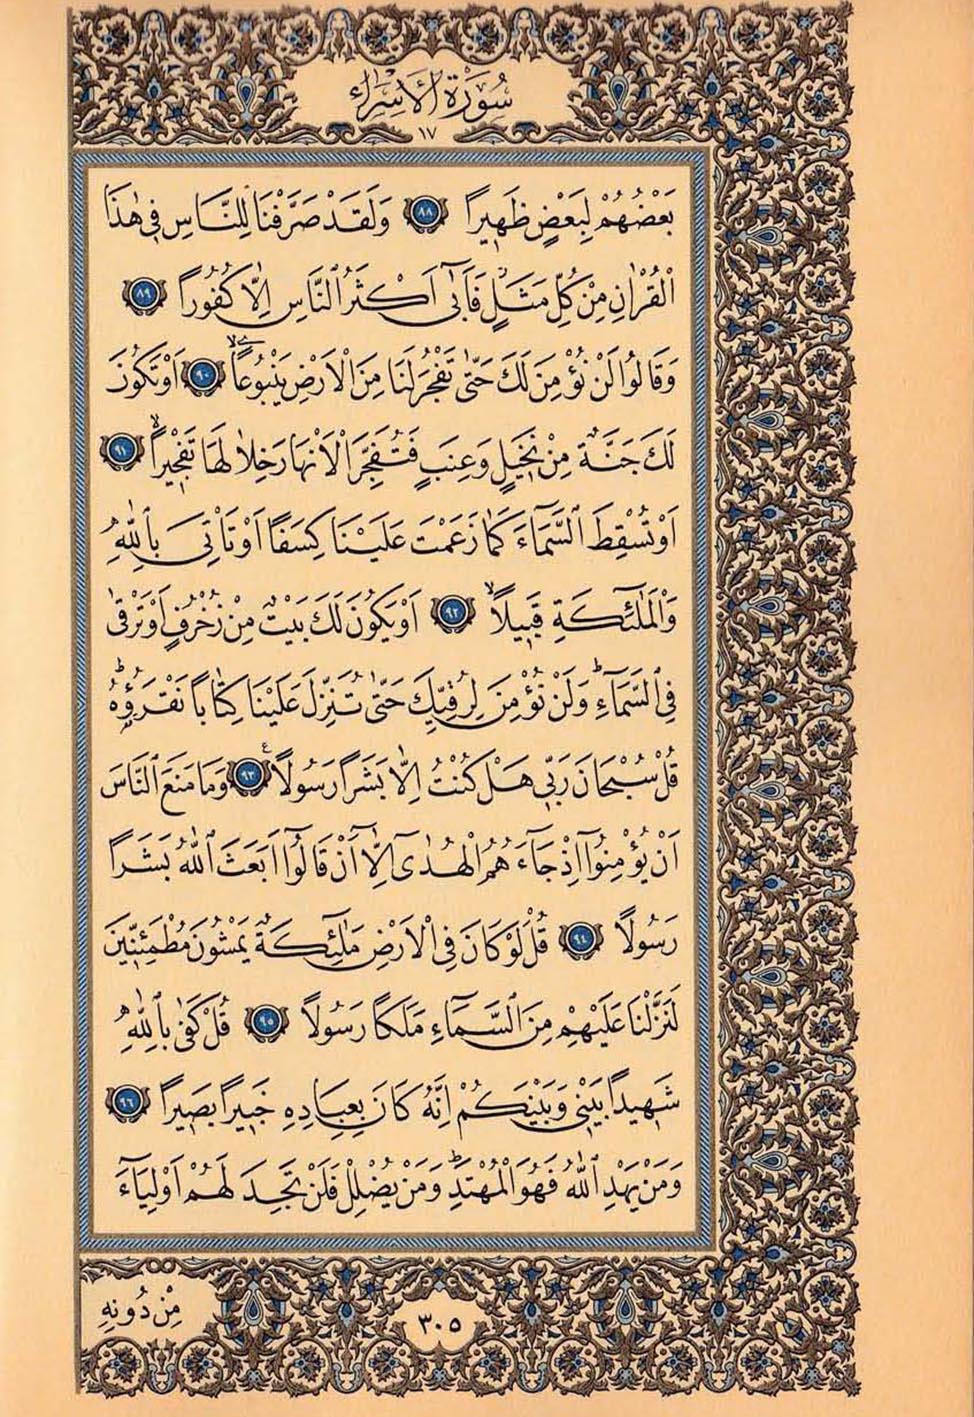 سُورَةُ الْاِسْرَاءِ
١٧
بَعْضُهُمْ لِبَعْضٍ ظَهِيرًا ٨٨ وَلَقَدْ صَرَّفْنَا لِلنَّاسِ فِي هٰذَا
الْقُرْاٰنِ مِنْ كُلِّ مَثَلٍۘ فَاَبٰٓى اَكْثَرُ النَّاسِ اِلَّا كُفُورًا ٨٩
وَقَالُوا لَنْ نُؤْمِنَ لَكَ حَتّٰى تَفْجُرَ لَنَا مِنَ الْاَرْضِ يَنْبُوعًاۙ ٩٠ اَوْ تَكُونَ
لَكَ جَنَّةٌ مِنْ نَخِيلٍ وَعِنَبٍ فَتُفَجِّرَ الْاَنْهَارَ خِلَالَهَا تَفْجِيرًاۙ ٩١
اَوْ تُسْقِطَ السَّمَٓاءَ كَمَا زَعَمْتَ عَلَيْنَا كِسَفًا اَوْ تَأْتِيَ بِاللّٰهِ
وَالْمَلٰٓئِكَةِ قَبِيلًاۙ ٩٢ اَوْ يَكُونَ لَكَ بَيْتٌ مِنْ زُخْرُفٍ اَوْ تَرْقٰى
فِي السَّمَٓاءِۜ وَلَنْ نُؤْمِنَ لِرُقِيِّكَ حَتّٰى تُنَزِّلَ عَلَيْنَا كِتَابًا نَقْرَؤُ۬هُۜ
قُلْ سُبْحَانَ رَبِّي هَلْ كُنْتُ اِلَّا بَشَرًا رَسُولًا۟ ٩٣ وَمَا مَنَعَ النَّاسَ
اَنْ يُؤْمِنُٓوا اِذْ جَٓاءَهُمُ الْهُدٰٓى اِلَّٓا اَنْ قَالُٓوا اَبَعَثَ اللّٰهُ بَشَرًا
رَسُولًا ٩٤ قُلْ لَوْ كَانَ فِي الْاَرْضِ مَلٰٓئِكَةٌ يَمْشُونَ مُطْمَئِنِّينَ
لَنَزَّلْنَا عَلَيْهِمْ مِنَ السَّمَٓاءِ مَلَكًا رَسُولًا ٩٥ قُلْ كَفٰى بِاللّٰهِ
شَهِيدًا بَيْنِي وَبَيْنَكُمْ اِنَّهُ كَانَ بِعِبَادِهِ خَبِيرًا بَصِيرًا ٩٦
وَمَنْ يَهْدِ اللّٰهُ فَهُوَ الْمُهْتَدِۚ وَمَنْ يُضْلِلْ فَلَنْ تَجِدَ لَهُمْ اَوْلِيَٓاءَ
مِنْ دُونِهِ
٣٠٥